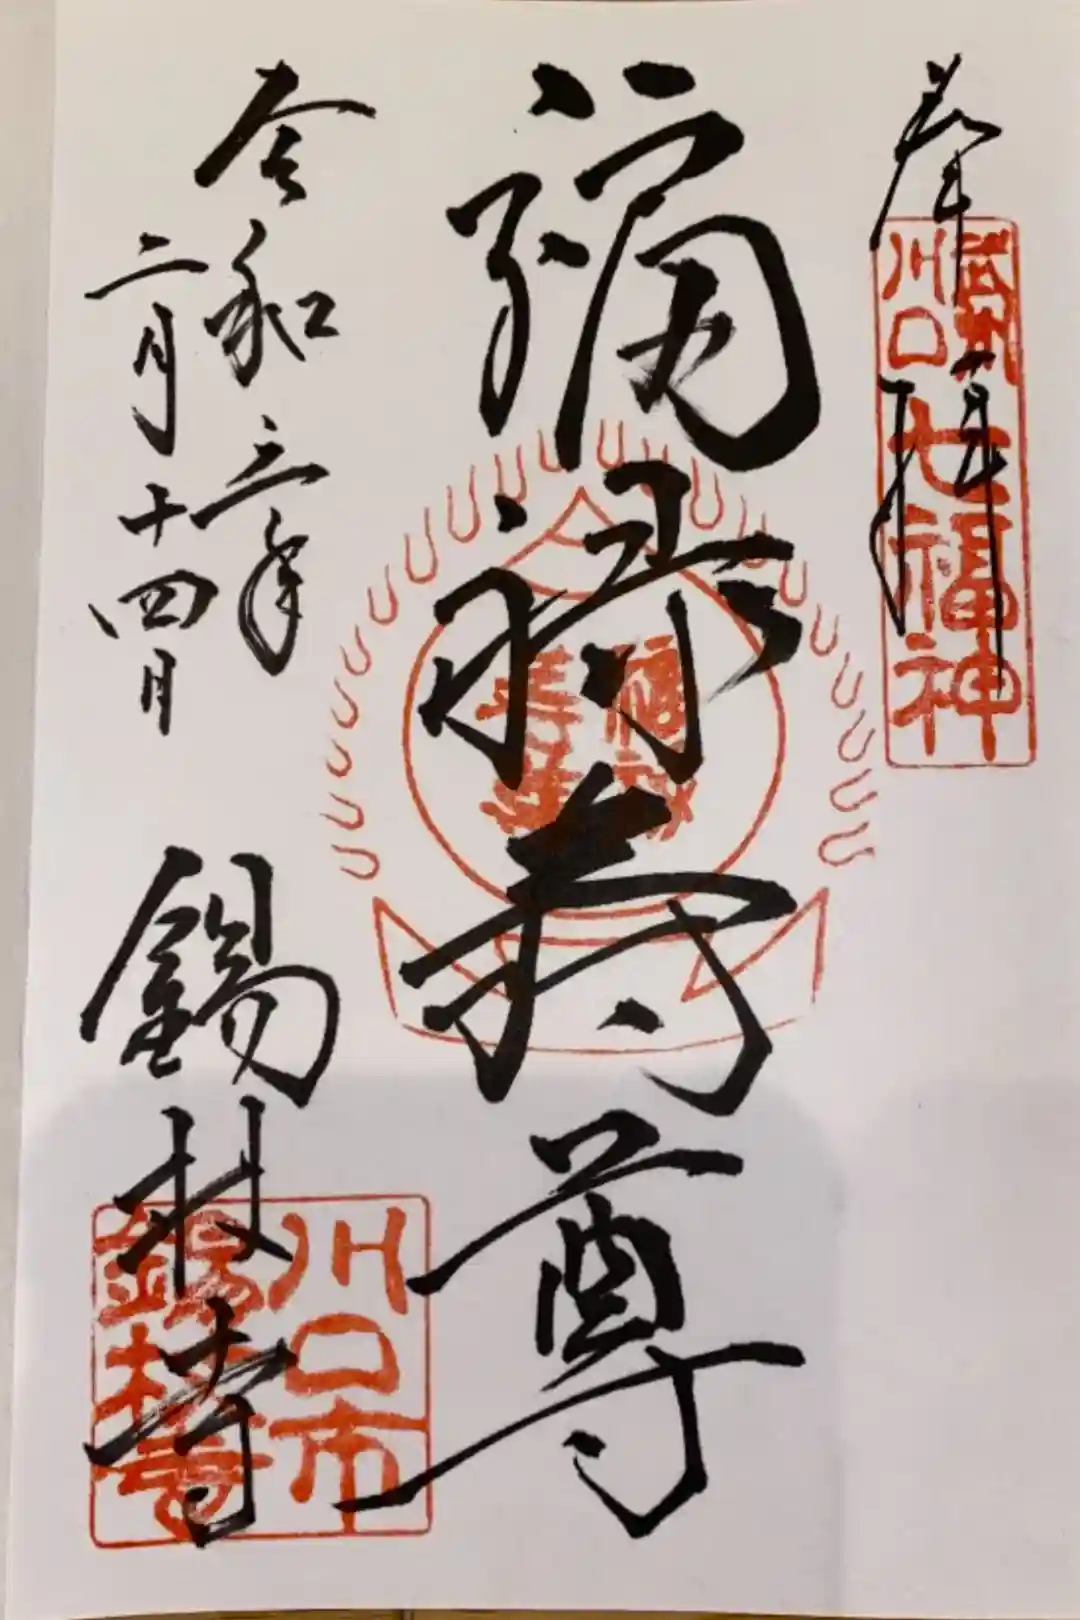 奉拝
武州
川口
七福神
福禄寿尊
福禄
寿尊
令和三年
二月十四日
錫杖寺
川口市
錫杖寺